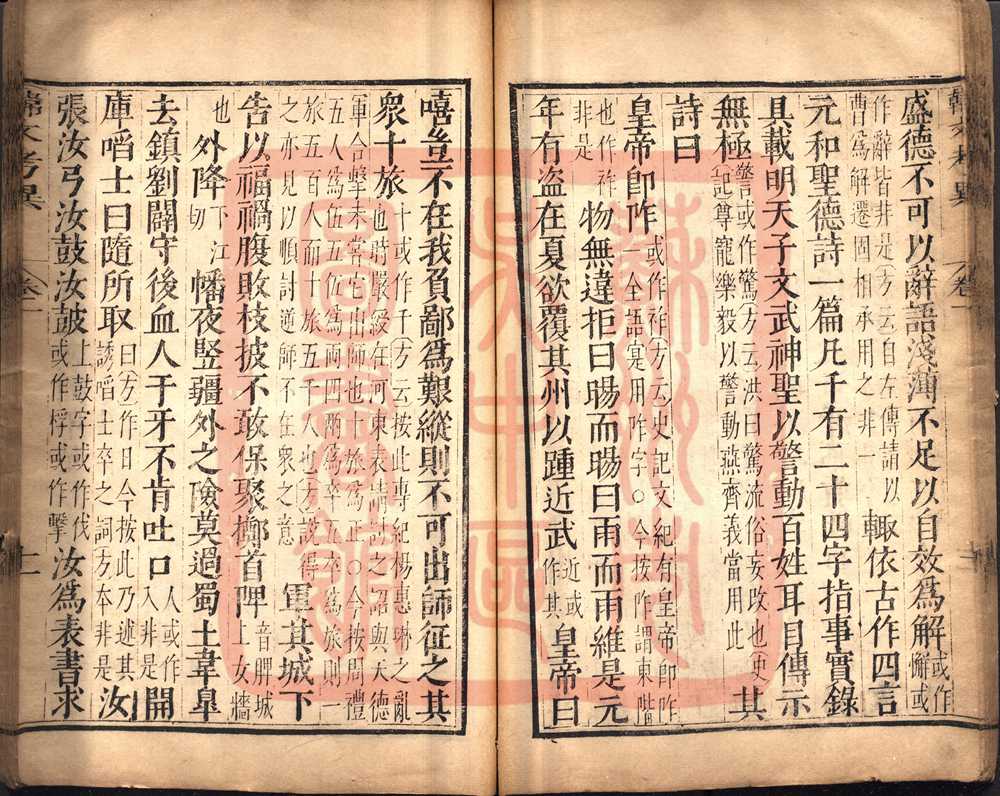 盛德不可以辭語淺薄不足以自效爲解或作懈或
作辭皆非是方云自左傳請以曹爲解遷固相承用之非一輙依古作四言
元和聖德詩一篇凡千有二十四字指事實錄
具載明天子文武神聖以警動百姓耳目傳示
無極警或作驚方云洪曰驚流俗妄改也史記尊寵樂毅以警動燕齊義當用此其
詩曰
皇帝卽阼或作祚方云史記文紀有皇帝卽阼一全語寔用阼字○今按阼謂東階
也作祚非是物無違拒曰暘而暘曰雨而雨維是元
年有盗在夏欲覆其州以踵近武近或作其皇帝曰
嘻豈不在我負鄙爲艱縱則不可出師征之其
衆十旅十或作千方云按此專紀楊惠琳之亂也時嚴綬在河東表請討之詔與天德
軍合擊未嘗它出師也十旅爲正○今按周禮五人爲伍五伍爲兩四兩爲卒五卒爲旅則一
旅五百人而十旅五千人也方說得之亦見以順討逆師不在衆之意軍其城下
告以福禍腹敗枝披不敢保聚擲首陴音脾城上女牆
也外降下江切幡夜竪疆外之險莫過蜀土韋臯
去鎮劉闢守後血人于牙不肯吐口人或作入非是開
庫啗士曰隨所取曰方作日今按此乃述其誘啗士卒之詞方本非是汝
張汝弓汝鼓汝鼓上鼓字或作伐或作桴或作擊汝爲表書求
韓文考異
卷一
十一